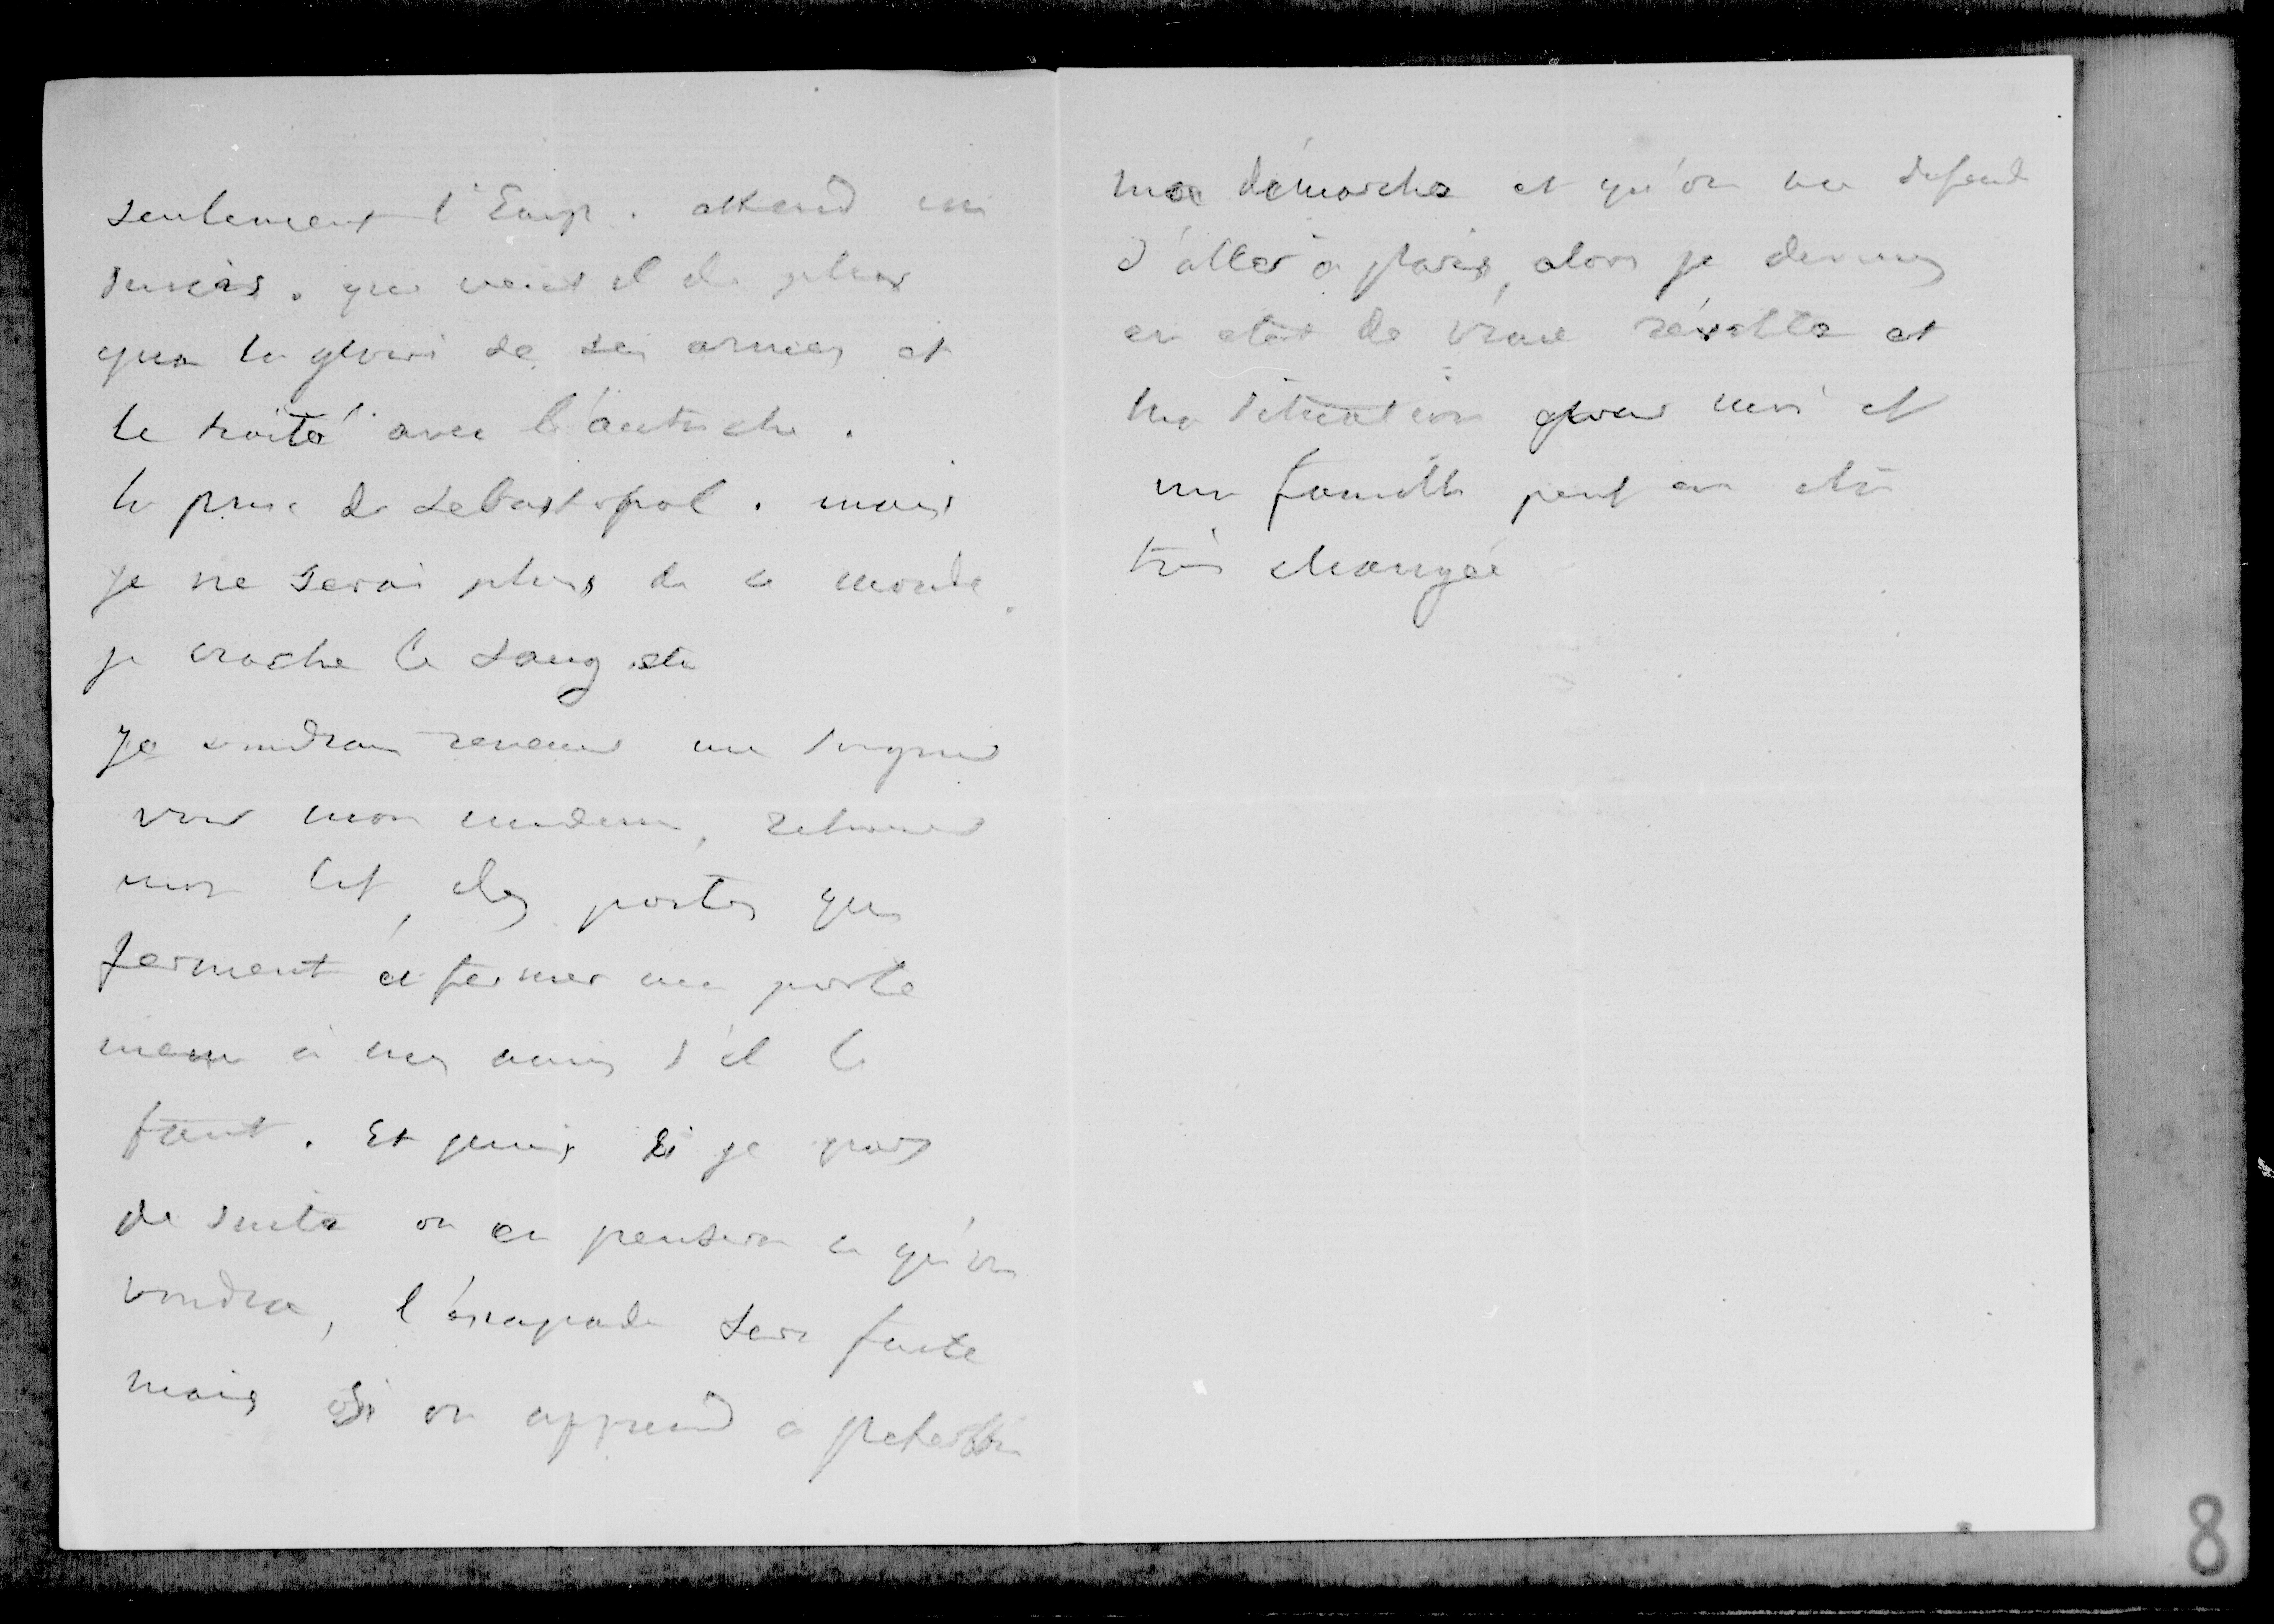 seulement l'Emp. attend un
succès. que veut il de plus
que la gloire de ses armes et
le traité avec l'autriche.
la prise de Sebastopol. mais
je ne serai plus de ce monde.
je crache le sang etc
Je voudrais revenir me soigner
voir mon medecin, retrouver
mon lit, des portes qui
ferment et fermer ma porte
meme à mes amis s'il le
faut. Et puis si je pars
de suite on en pensera ce qu'on
voudra, l'escapade sera faite
mais si on apprend a
ma démarche et qu'on me defend
d'aller à paris, alors je deviens
en etat de vraie révolte et
ma situation pour moi et
ma famille peut en etre
très changée
8